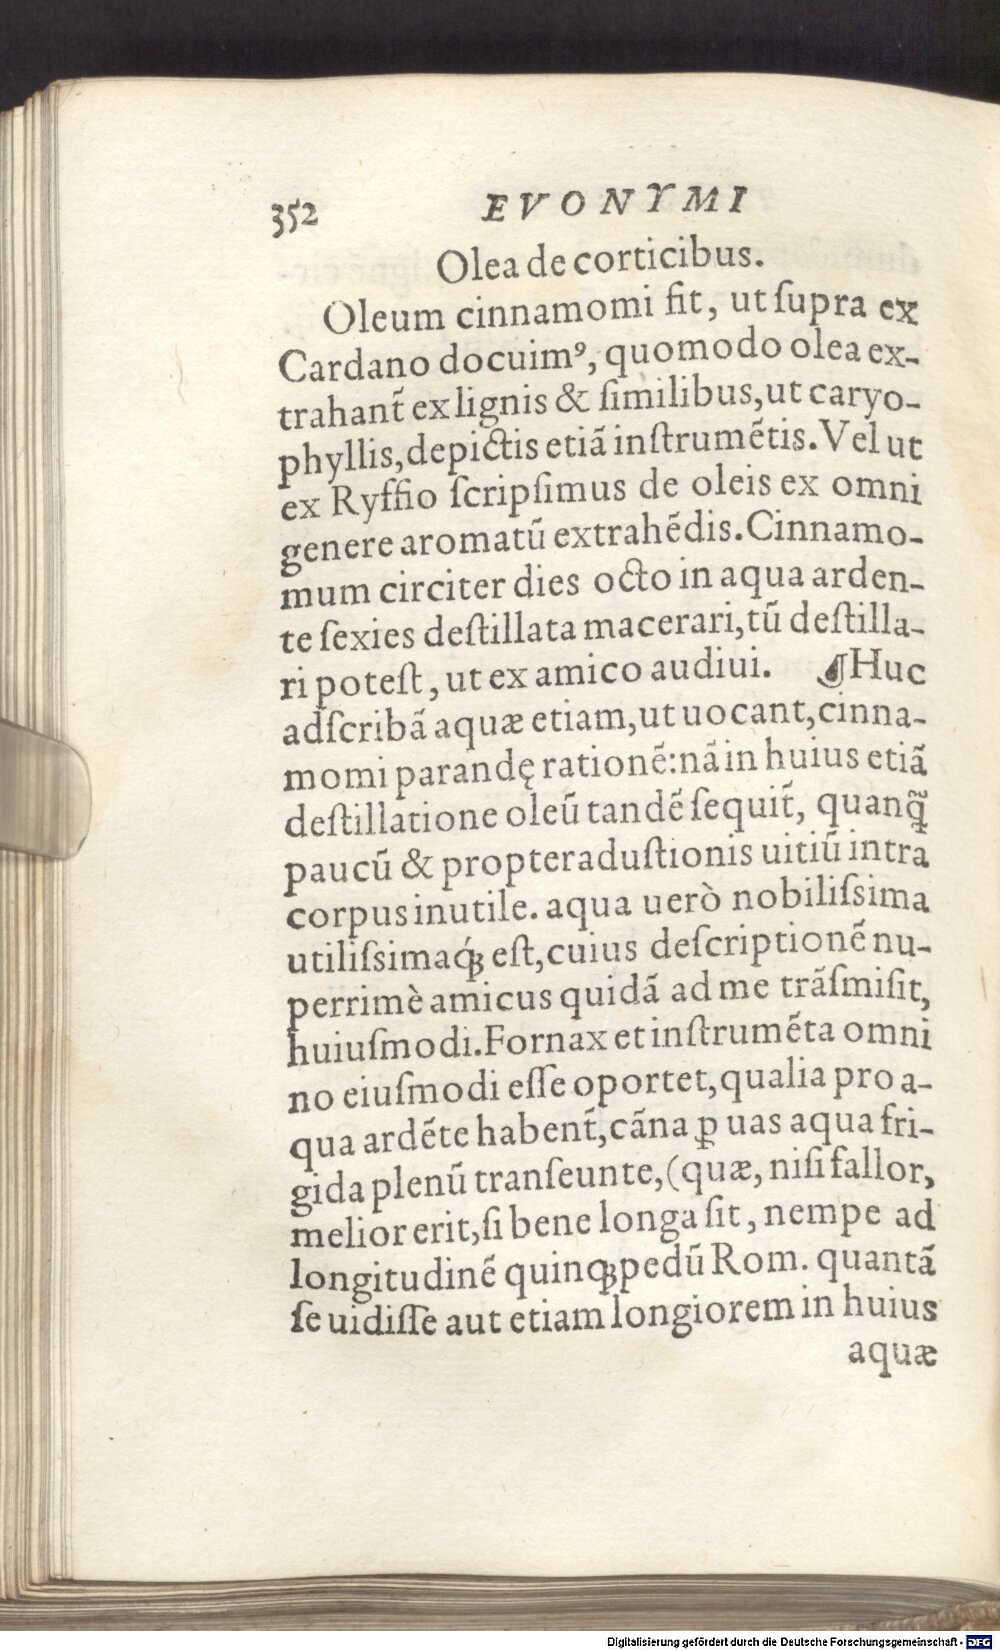 352 EVONYMI
Olea de corticibus.
Oleum cinnamomi fit, ut ſupra ex
Cardano docuimꝰ, quomodo olea ex-
trahant̃ ex lignis & ſimilibus, ut caryo-
phyllis, depictis etiã inſtrumẽtis. Vel ut
ex Ryffio ſcripſimus de oleis ex omni
genere aromatũ extrahẽdis. Cinnamo-
mum circiter dies octo in aqua arden-
te ſexies deſtillata macerari, tũ deſtilla-
ri poteſt, ut ex amico audiui. ¶Huc
adſcribã aquæ etiam, ut uocant, cinna-
momi parandę rationẽ: nã in huius etiã
deſtillatione oleũ tandẽ ſequit̃, quanq̃
paucũ & propter aduſtionis uitiũ intra
corpus inutile. aqua uerò nobiliſsima
utiliſsimaq́ꝫ eſt, cuius deſcriptionẽ nu-
perrimè amicus quidã ad me trãſmiſit,
huiuſmodi. Fornax et inſtrumẽta omni
no eiuſmodi eſſe oportet, qualia pro a-
qua ardẽte habent̃, cãna ꝑ uas aqua fri-
gida plenũ tranſeunte, (quæ, niſi fallor,
melior erit, ſi bene longa ſit, nempe ad
longitudinẽ quinqꝫ pedũ Rom. quantã
ſe uidiſſe aut etiam longiorem in huius
aquæ
Digitalisierung gefördert durch die Deutsche Forschungsgemeinschaft - DFG